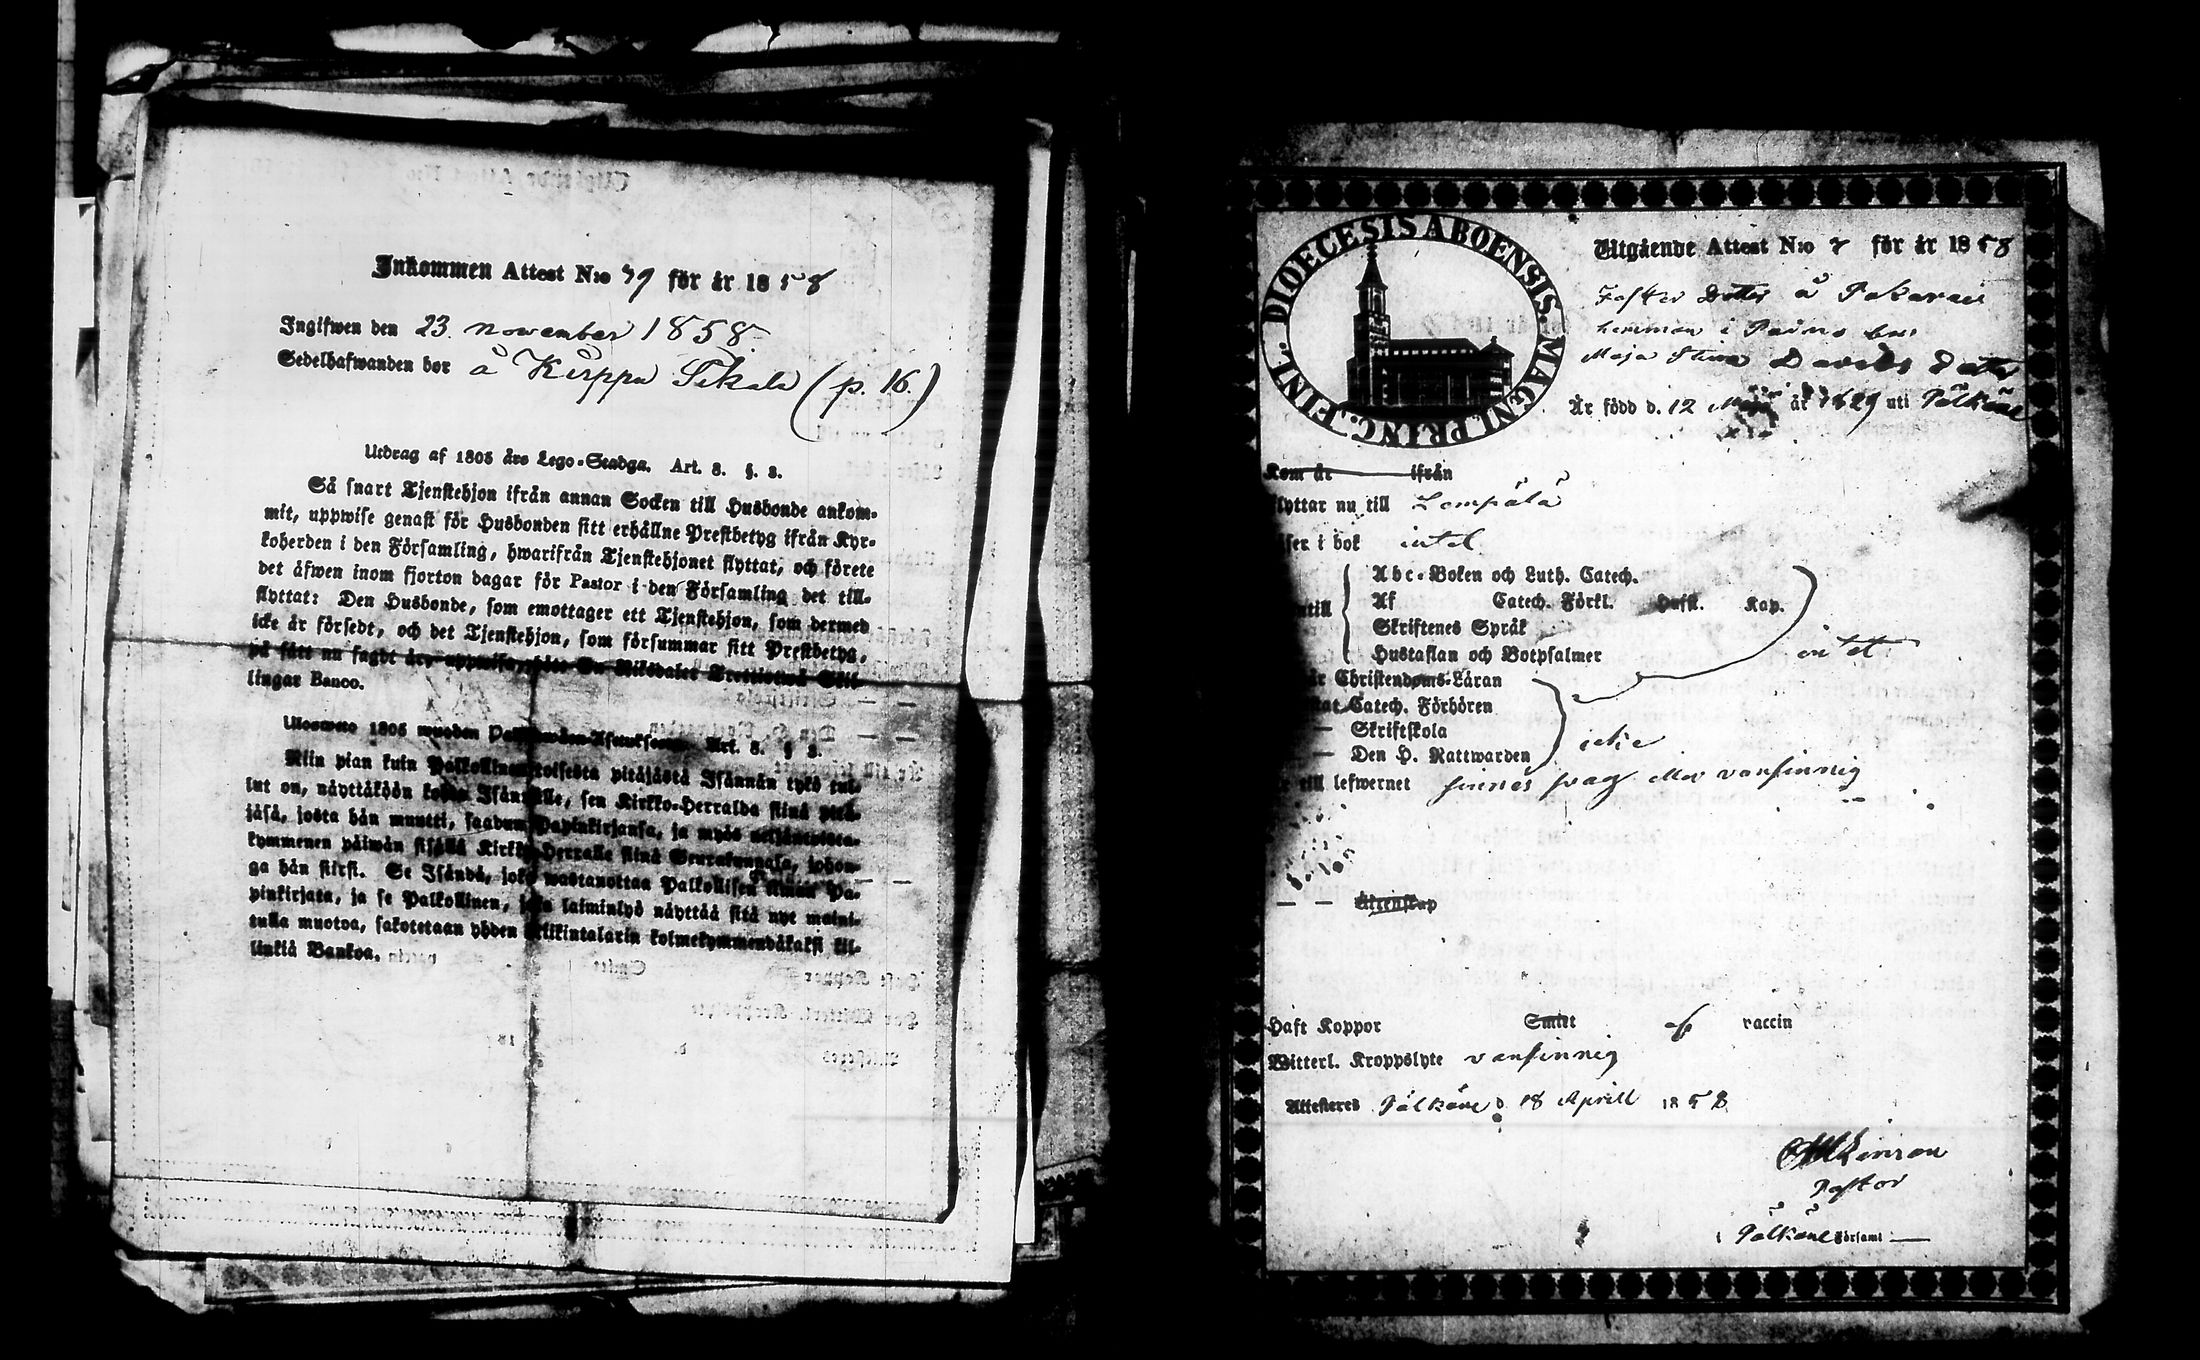 Inkommen Attest N:o 79 för år 1858
Ingifwen den 23. november 1858
Sedelhafwanden bor å Kirppu Sikala (p. 16.)
Utdrag af 1805 års Lego-Stadga. Art. 8. §. 2.
Så snart Tjenstehjon ifrån annan Socken till Husbonde ankom-
mit, uppwise genast för Husbonden sitt erhållne Prestbetyg ifrån Kyr-
koherden i den Församling, hwarifrån Tjenstehjonet flyttat, och förete
det äfwen inom fjorton dagar för Pastor i den Församling det till-
flyttat: Den Husbonde, som emottager ett Tjenstehjon, som dermed
icke är försedt, och det Tjenstehjon, som försummar sitt Prestbetyg,
på sätt nu sagdt är, uppwisa, böte En Riksdaler Trettiotwå Skil-
lingar Banco.
Ulosweto 1805 wuoden Art. 8. § 2.
Niin pian kuin Palkollinen toisesta pitäjästä Isännän tykö tul-
lut on, näyttäköön kohta Isännälle, sen Kirkko-Herralda siinä pitä-
jäsä, josta hän muutti, saadun Papinkirjansa, ja myös neljäntoista-
kymmenen päiwän sisällä Kirkko-Herralle siinä Seurakunnasa, johon-
ga hän siirsi. Se Isändä, joka wastanottaa Palkollisen ilman Pa-
pinkirjata, ja se Palkollinen, joka laiminlyö näyttää sitä nyt maini-
tulla muotoa, sakotetaan yhden Riikintalarin kolmekymmendäkaksi kil-
linkiä Bankoa.
DIOECESIS ABOENSIS. MAGNI PRINC. FINL.
Utgående Attest N:o 7 för år 1858
Foster Dotter å
hemman i by
Maja Stina Davids Dotter
Är född d. 12 år 1829 uti Pälkäne
Kom år ifrån
flyttar nu till Lempälä
ser i bok intet
ntill
Abc-Boken och Luth. Catech.
Af Catech. Förkl. Hufst. Kap.
Skriftenes Språk
Hustaflan och Botpsalmer
intet
r Christendoms-Läran
tat Catech. Förhören
— Skriftskola
— Den H. Nattwarden
icke
till lefwernet finnes svag eller vansinnig
— — Äktenskap
Haft Koppor Smitt af vaccin
Witterl. Kroppslyte vansinnig
Attesteras Pälkäne d. 18 Aprill 1858
Pastor
i Pälkäne Församl